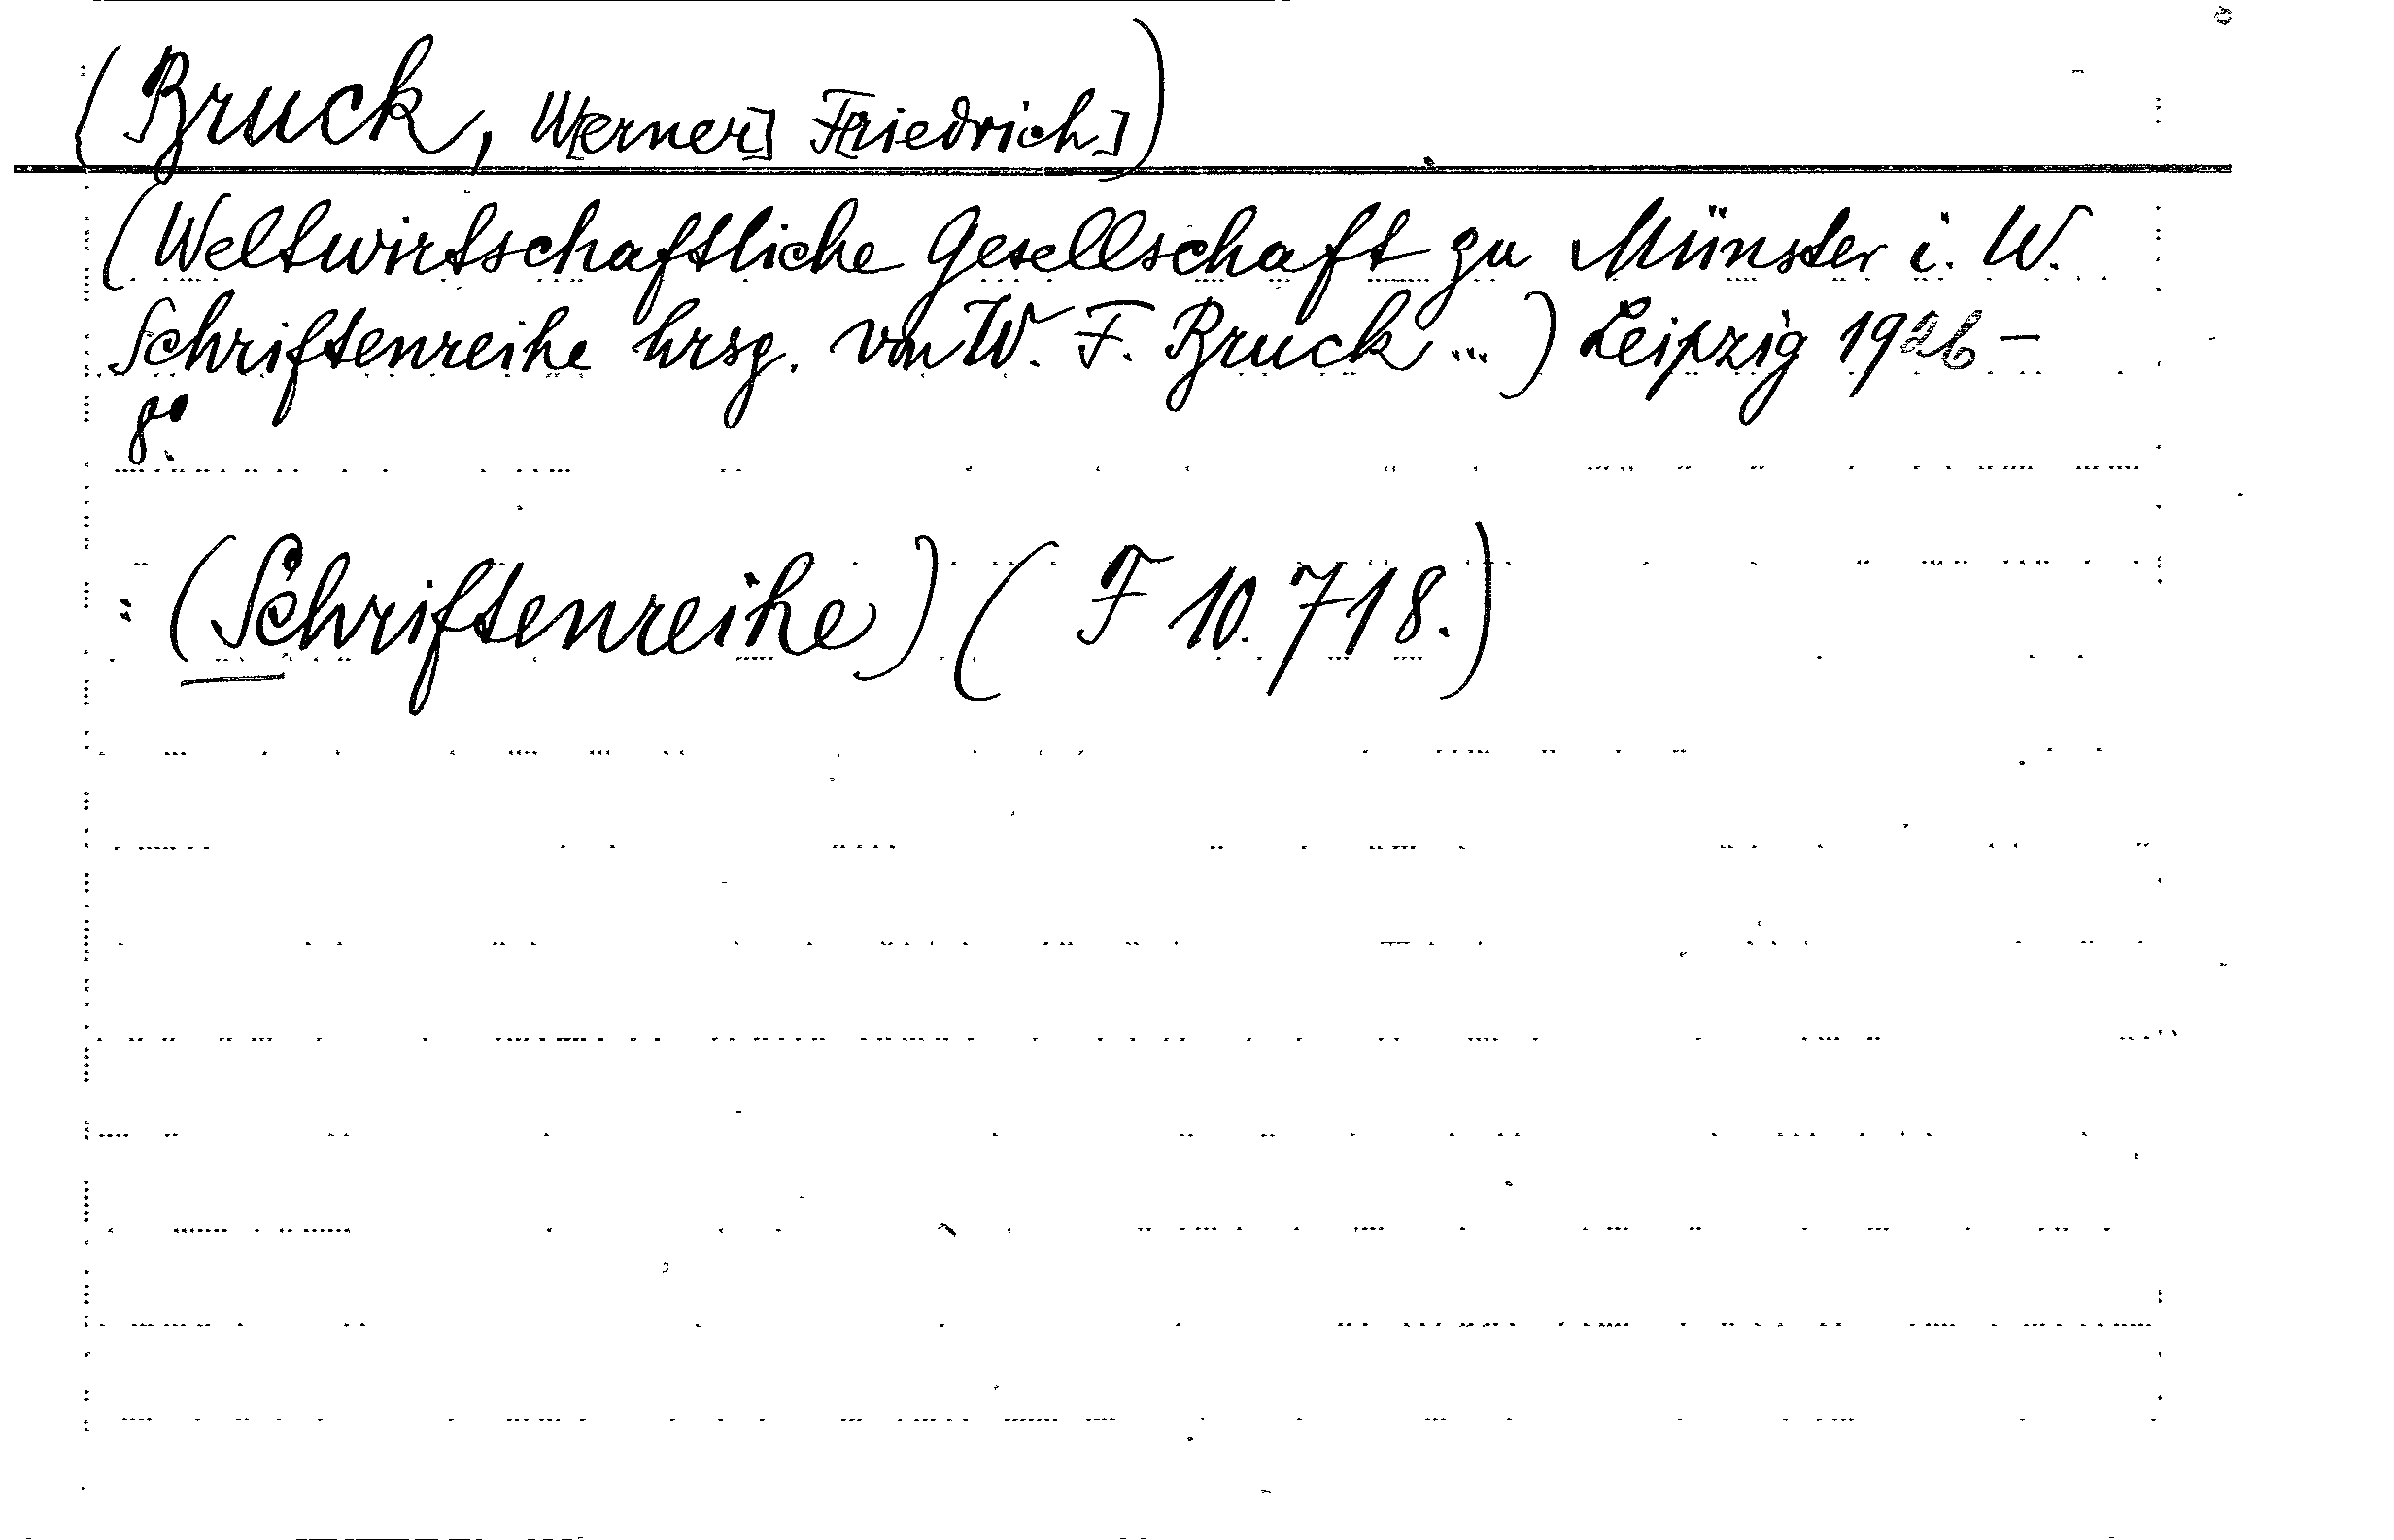 (Bruck, W[erner] F[riedrich])
(Weltwirtschaftliche Gesellschaft zu Münster i. W.
Schriftenreihe hrsg. von W. F. Bruck ...) Leipzig 1926 –
8°.
: (Schriftenreihe) ( F 10.718.)